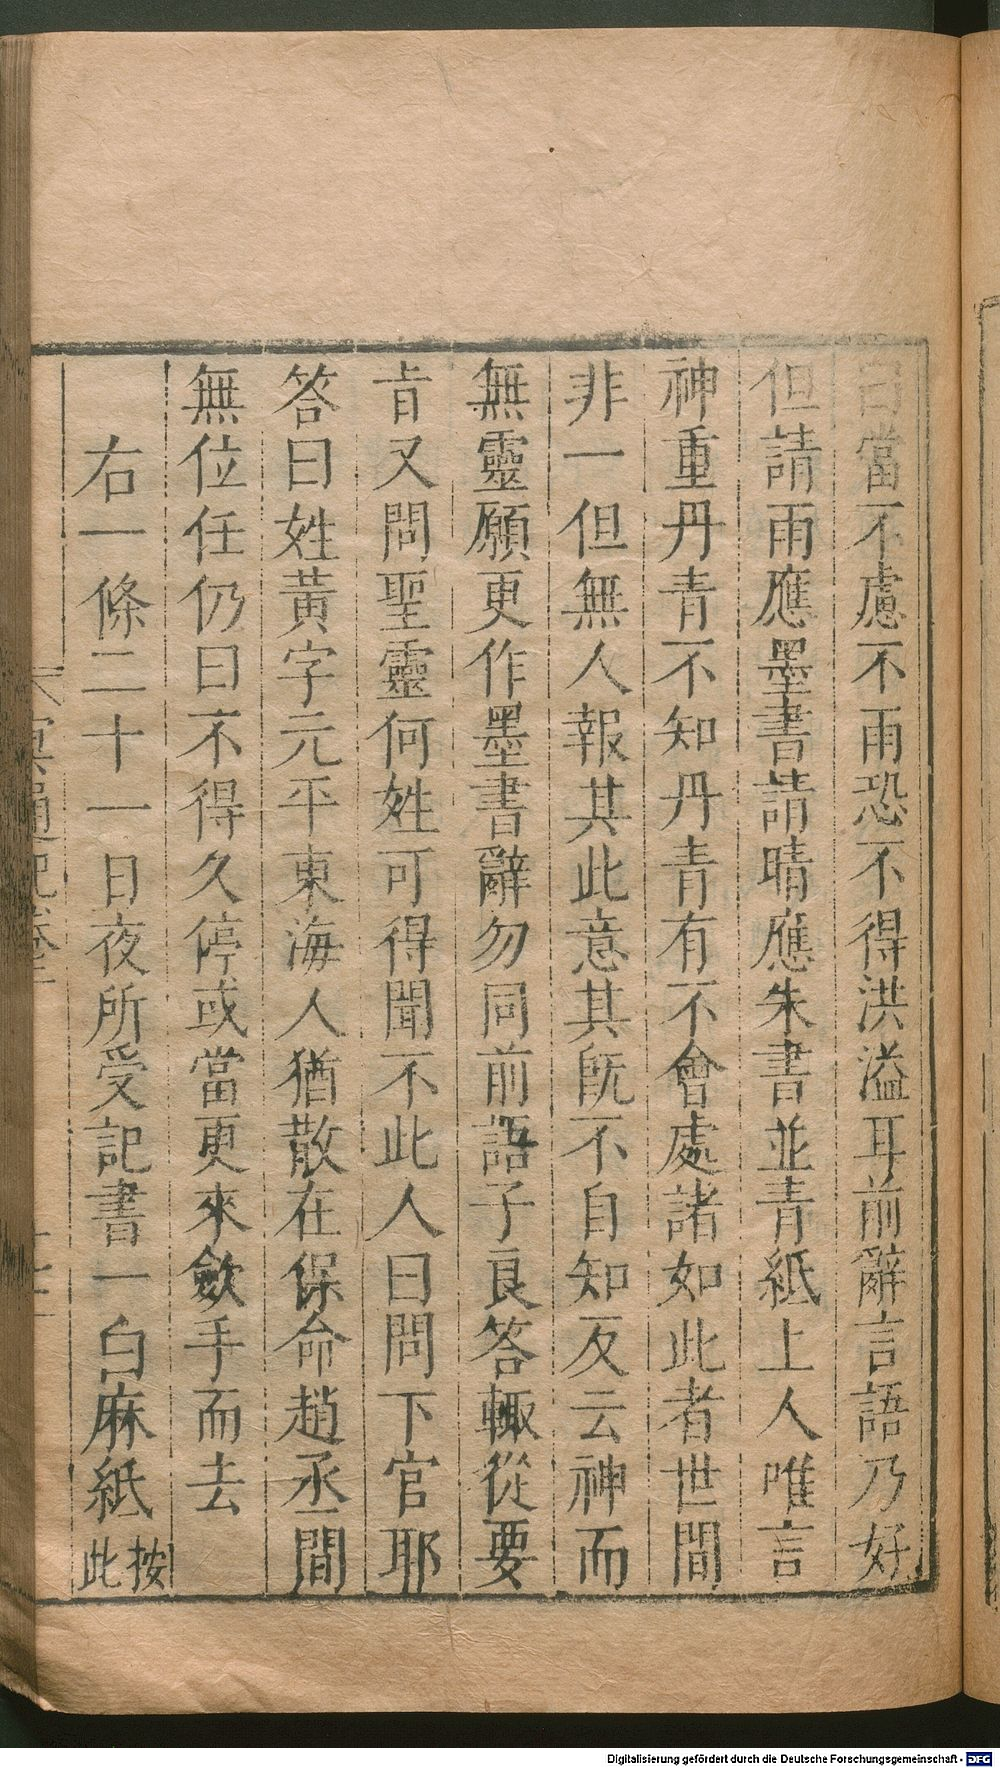 曰當不慮不雨恐不得洪溢耳前辭言語乃好
但請雨應墨書請晴應朱書並青紙上人唯言
神重丹青不知丹青有不會處諸如此者世間
非一但無人報其此意其旣不自知反云神而
無靈願更作墨書辭勿同前語子良答輙從要
㫖又問聖靈何姓可得聞不此人曰問下官耶
答曰姓黃字元平東海人猶散在保命趙丞間
無位任仍曰不得久停或當更來斂手而去
右一條二十一日夜所受記書一白麻紙 按此
冥通記卷
Digitalisierung gefördert durch die Deutsche Forschungsgemeinschaft - DFG